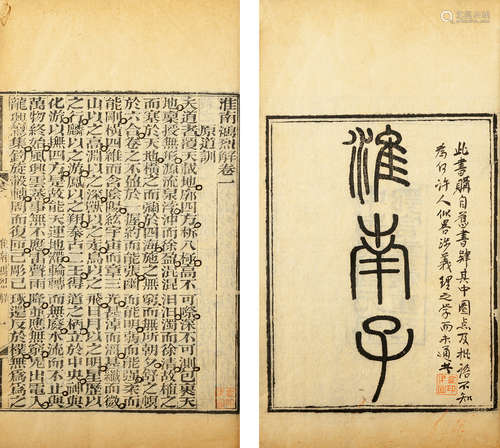 此書購自舊書肆其中圈点及批语不知
為何许人似略涉義理之学而未通者
淮南子
淮南鴻烈解卷一
原道訓
夫道者覆天載地廓四方柝八極高不可際深不可測包裹天
地稟授無形源流泉浡沖而徐盈混混汩汩濁而徐清故植之
而塞於天地橫之而彌於四海施之無窮而無所朝夕舒之幎
於六合卷之不盈於一握約而能張幽而能明弱而能强柔而
能剛橫四維而含陰陽紘宇宙而章三光甚淖而滒甚纖而微
山以之高淵以之深獸以之走鳥以之飛日月以之明星歷以
之行麟以之游鳳以之翔泰古二皇得道之柄立於中央神與
化游以撫四方是故能天運地滯輪轉而無廢水流而不止與
萬物終始風興雲蒸事無不應雷聲雨降並應無窮鬼出電入
龍興鸞集鈞旋轂轉周而復匝已彫已琢還反於樸無為為之
淮南鴻烈解 一